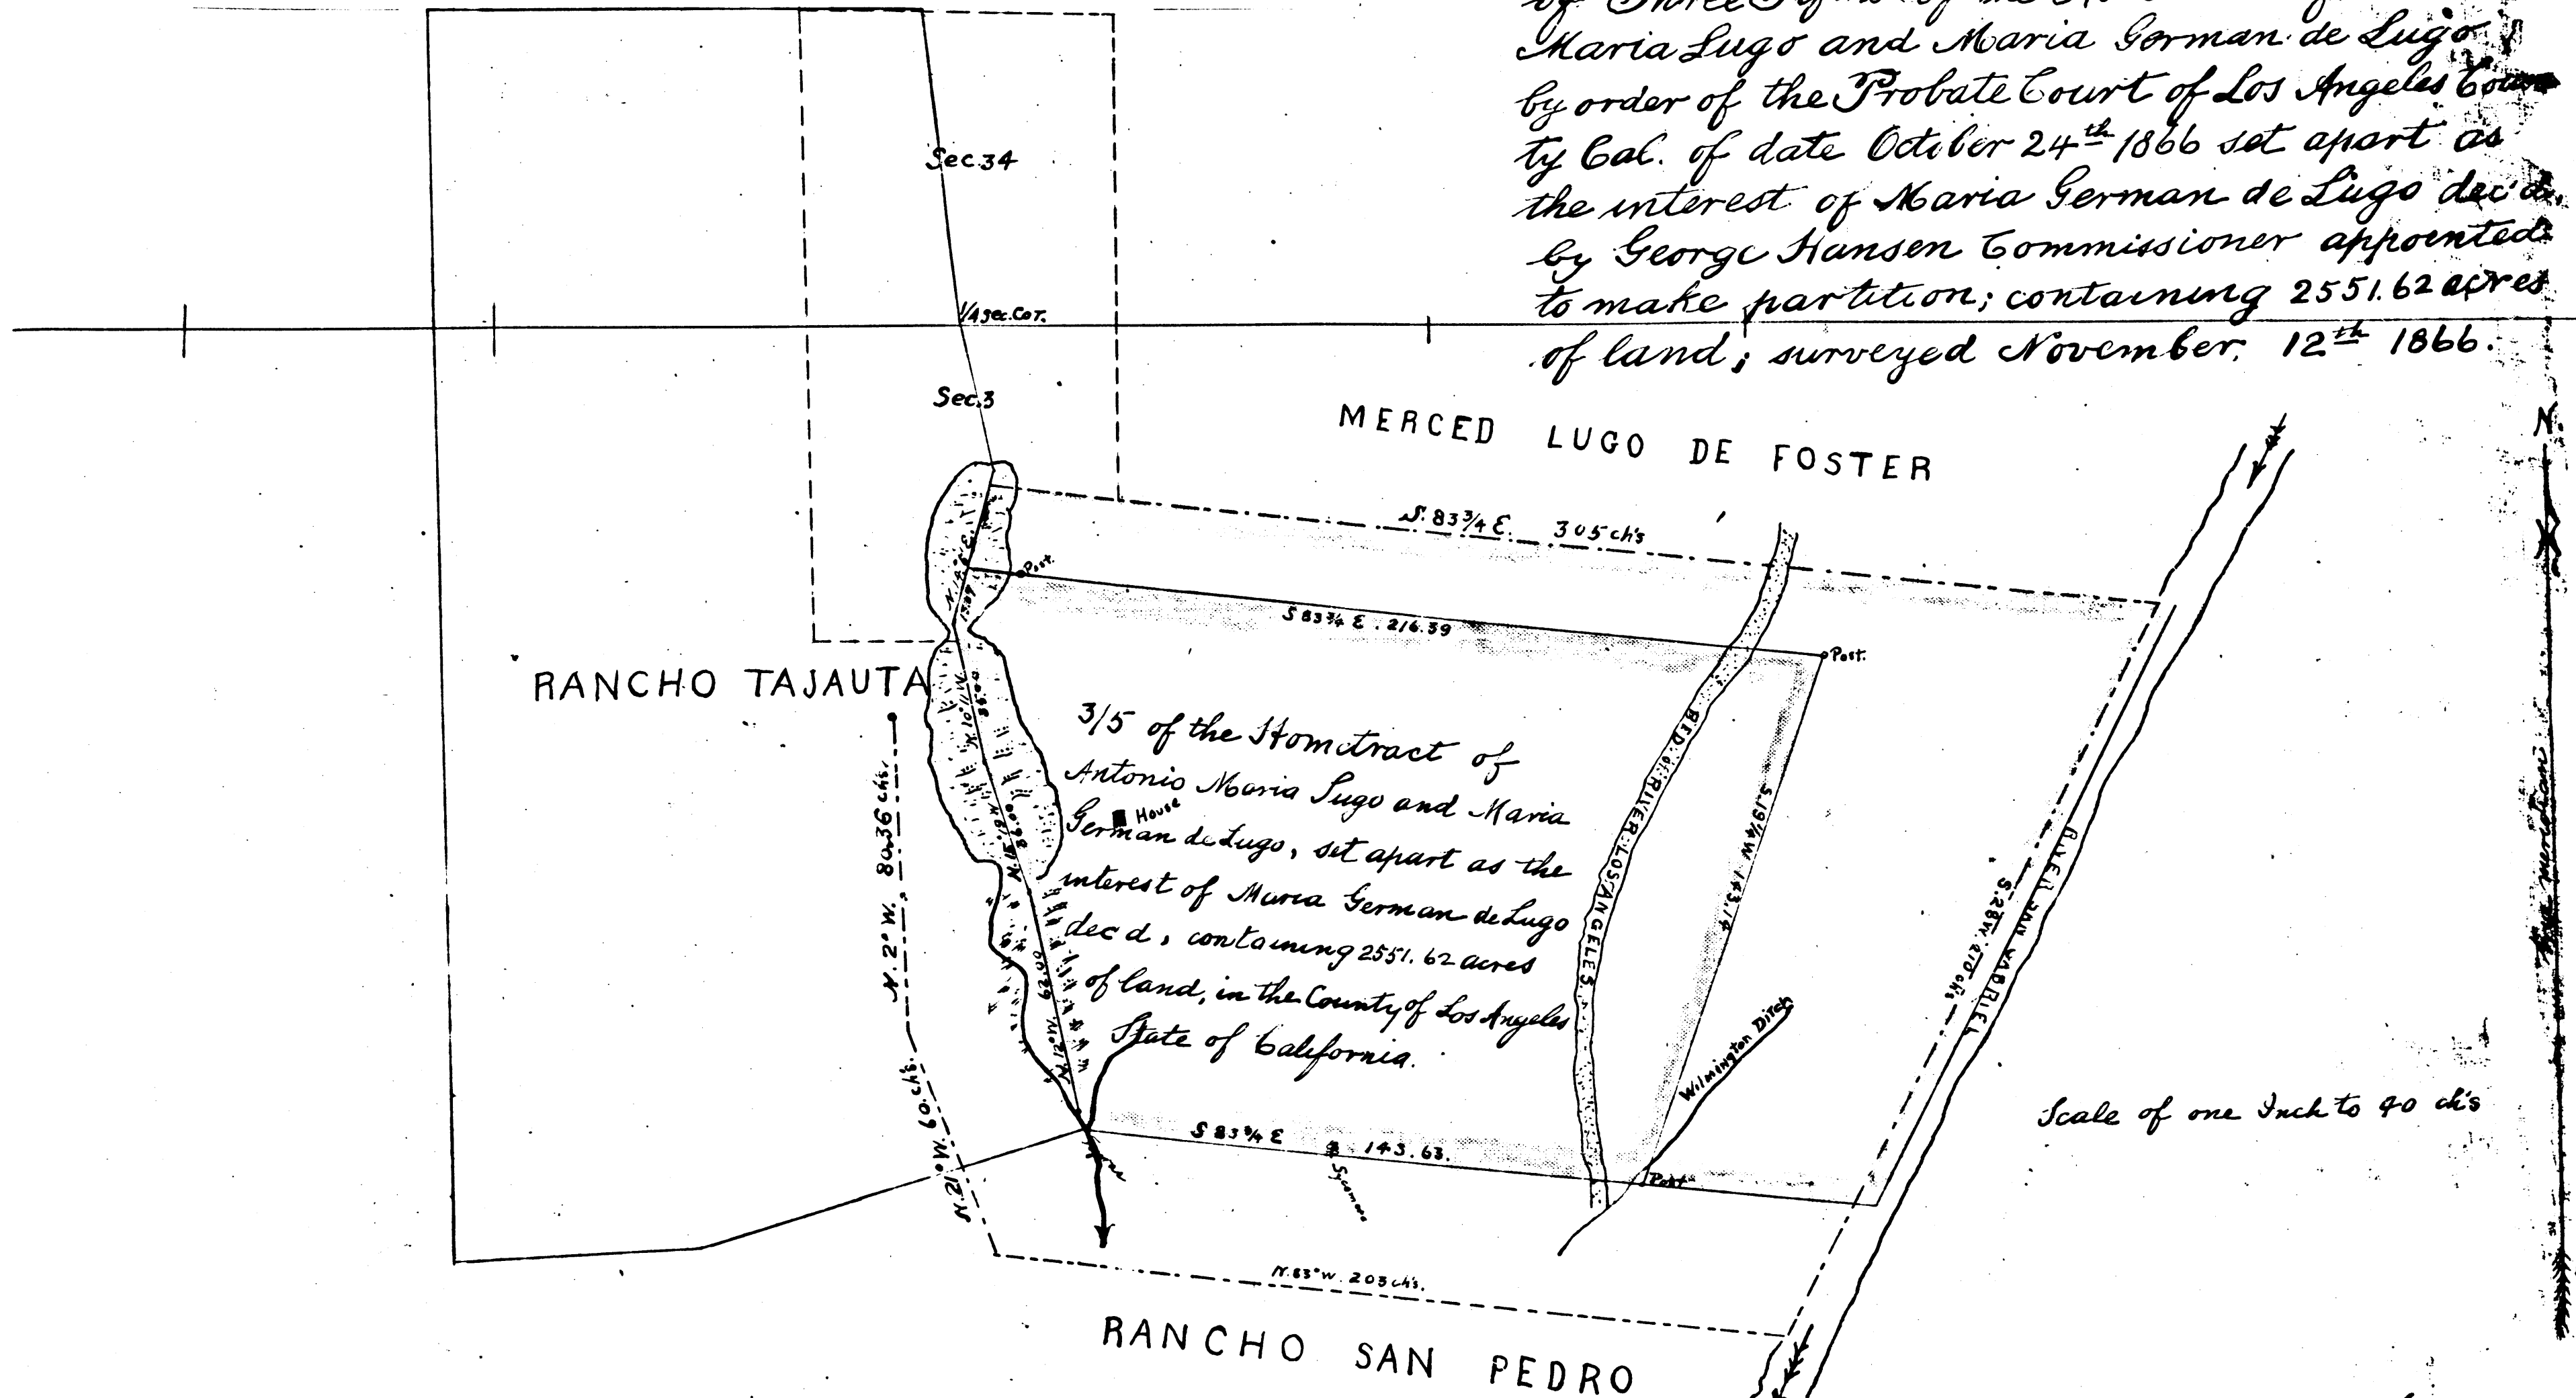 Maria Lugo and Maria German de Lugo
by order of the Probate Court of Los Angeles Coun
ty Cal. of date October 24th 1866 set apart as
the interest of Maria German de Lugo dec'd.
by George Hansen Commissioner appointed
to make partition; containing 2551.62 acres
of land; surveyed November. 12th 1866.
Sec.34
1/4 sec. Cor.
Sec.3
MERCED LUGO DE FOSTER
N.
S. 83 3/4 E. 305 ch's
Post.
S 83 3/4 E. 216.39
Post.
RANCHO TAJAUTA
3/5 of the Hometract of
Antonio Maria Lugo and Maria
House
German de Lugo, set apart as the
interest of Maria German de Lugo
dec d, containing 2551.62 acres
of land, in the County of Los Angeles
State of California.
BED OF RIVER LOS ANGELES
S. 19 1/4 W 143.14
S. 28 W. 210 ch's
RIVER SAN GABRIEL
meridian
N. 2° W. 80.36 ch's.
N. 21° W. 60. ch's.
Wilmington Ditch
Scale of one Inch to 40 ch's
S 83 3/4 E 143.63.
Sycamore
Post
N. 83° W. 203 ch's.
RANCHO SAN PEDRO